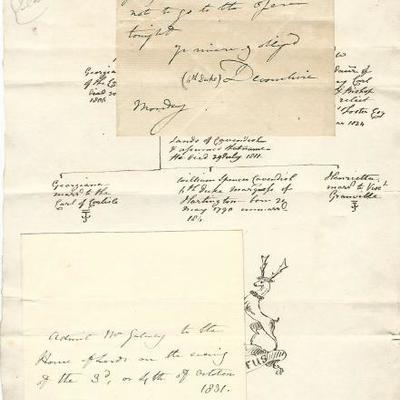 not to go to the Opera
tonight
(6th Duke) Devonshire
Monday
Georgiana
of the
died 30
1806
Earl
Bishop
relict
Foster Esq
1824
Lands of Cavendish
& assumed
He died 29 July 1811
Georgiana
mard to the
Earl of Carlisle
William Spencer Cavendish
6th Duke Marquess of
Hartington born 21
may 1790 unmard
18
Henrietta
mard to Visct
Granville
Admit Mr to the
House of Lords on the evening
of the 3d, or 4th of October
1831.